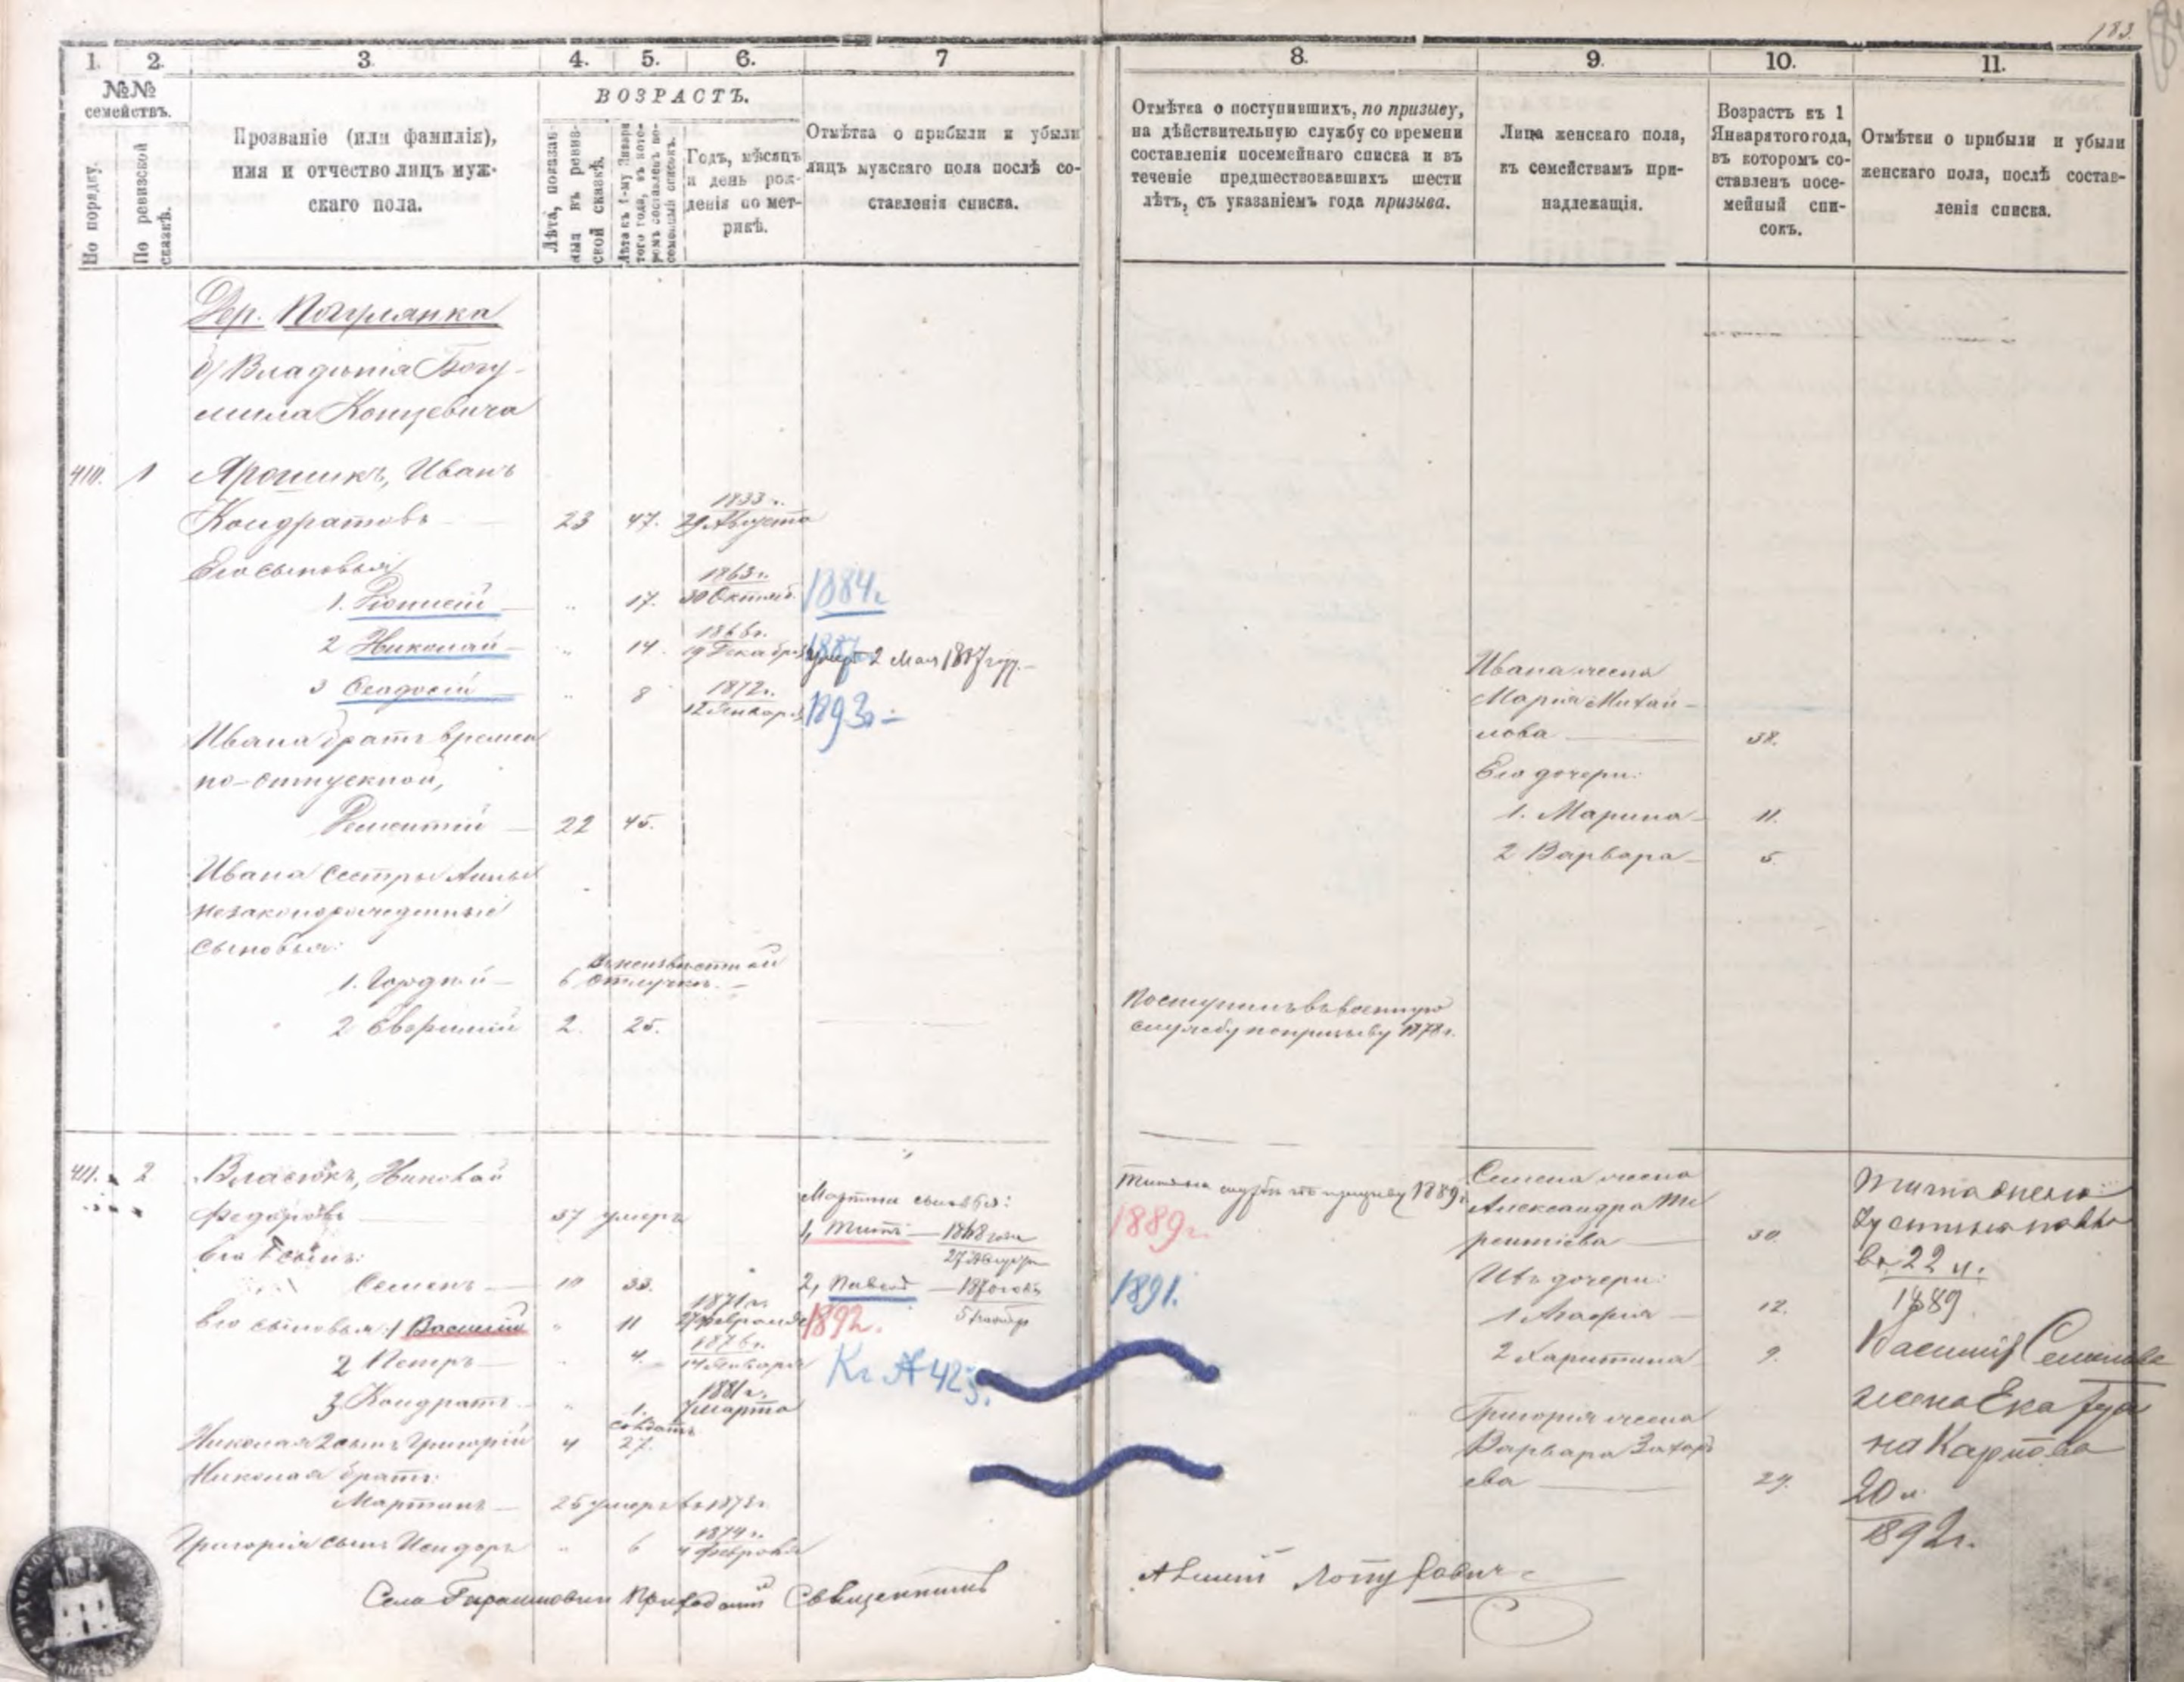 183.
1. 2. 3. 4. 5. 6. 7
№№ семействъ.
По порядку.
По ревизской сказкѣ.
Прозваніе (или фамилія),
имя и отчество лицъ муж-
скаго пола.
ВОЗРАСТЪ.
Лѣта, показан-
ныя въ ревиз-
ской сказкѣ.
Лѣта къ 1-му Января
того года, въ кото-
ромъ составленъ по-
семейный списокъ.
Годъ, мѣсяцъ
и день рож-
денія по мет-
рикѣ.
Отмѣтка о прибыли и убыли
лицъ мужскаго пола послѣ со-
ставленія списка.
8. 9. 10. 11.
Отмѣтка о поступившихъ, по призыву,
на дѣйствительную службу со времени
составленія посемейнаго списка и въ
теченіе предшествовавшихъ шести
лѣтъ, съ указаніемъ года призыва.
Лица женскаго пола,
къ семействамъ при-
надлежащія.
Возрастъ къ 1
Января того года,
въ которомъ со-
ставленъ посе-
мейный спи-
сокъ.
Отмѣтки о прибыли и убыли
женскаго пола, послѣ состав-
ленія списка.
Дер. Погулянка
б/ Владѣнія Богу-
мила Концевича
410. 1 Ярошикъ, Иванъ
Кондратовъ 23 47. 1833 г. 29 Августа
Его сыновья
1. Діонисій 17. 1863 г. 30 Октяб. 1884 г.
2 Николай 14. 1866 г. 19 Декабря 1887 умеръ 2 Мая 1887 году.
3 Феодосій 8 1872 г. 12 Января 1893 г.
Ивана братъ времен
но-отпускной,
Дементій 22 45.
Ивана сестры Анны
незаконорожденные
сыновья:
1. Гордѣй 6 въ неизвѣстной отлучкѣ.
2 Евфимій 2. 25.
Поступилъ въ военную
службу по призыву 1878 г.
Ивана жена
Марія Михай-
лова 38.
Его дочери:
1. Марина 11.
2 Варвара 5.
411. 2 Власюкъ, Николай
Федоровъ 57 умеръ
Его сынъ:
Семенъ 10 33.
Его сыновья: 1 Василій 11 1871 г. 27 Февраля 1892.
2 Петръ 4. 1876 г. 14 Января
3 Кондратъ 1. 1881 г. 7 Марта
Николая 2 сынъ Григорій 4 27. солдатъ
Николая братъ:
Мартинъ 25 умеръ въ 187
Григорія сынъ Исидоръ 6 1874 г. 4 Февраля
Мартина сыновья:
1, Титъ 1868 года 27
2, Павелъ 1870 года 5
Къ № 423.
службѣ по призыву 1889 г.
1889 г.
1891.
Семена жена
Александра Те
рентіева 30.
Ихъ дочери:
1 Агафія 12.
2 Харитина 9.
Григорія жена
Варвара Захарь
ева 29.
Тита жена
Іустина
22 л.
1889
Василія Семенова
жена Екатери
на Карпова
20 л.
1892 г.
Села Приходскій Священникъ